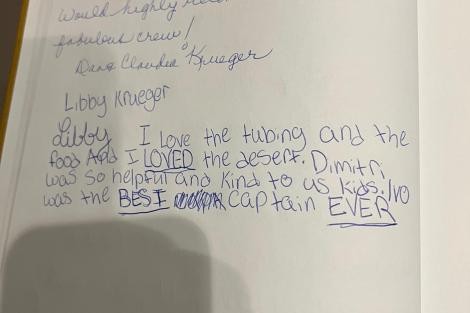 Would highly
fabulous crew!
Claudia Krueger
Libby Krueger
Libby I Love the tubing and the
food And I LOVED the desert. Dimitri
was so helpful and kind to us kids. Ivo
was the BEST captain EVER